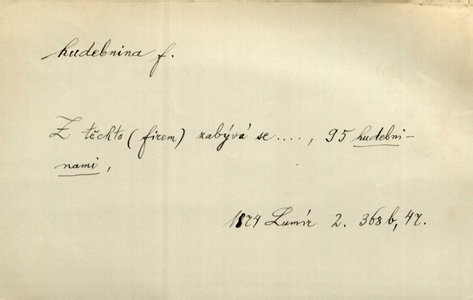 hudebnina f.
Z těchto (firem) zabývá se ...., 95 hudebni-
nami,
1874 Lumír 2. 368b, 47.